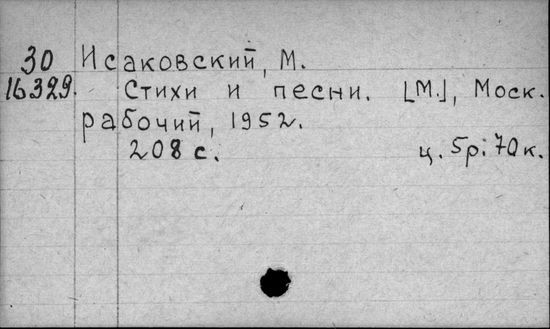 30 Исаковский, М.
16329. Стихи и песни. [М.], Моск.
рабочий, 1952.
208 с. ц. 5р. 70к.